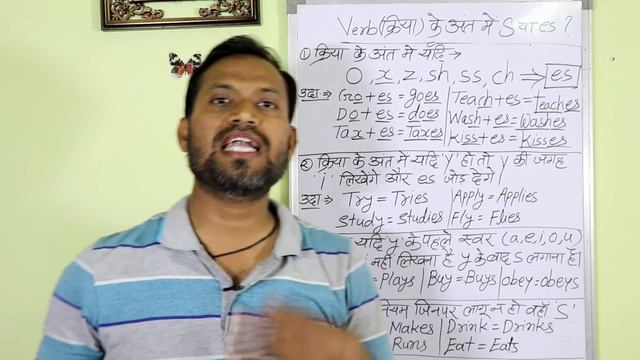 Verb (क्रिया) के अंत मे S या es ?
① क्रिया के अंत मे यदि →
O, x, z, sh, ss, ch ⇒ es
उदा ⇒ Go + es = goes | Teach + es = Teaches
Do + es = does | Wash + es = Washes
Tax + es = Taxes | Kiss + es = Kisses
② क्रिया के अंत मे यदि 'y' हो तो y की जगह
'i' लिखेंगे और es जोड़ देंगे
उदा ⇒ Try = Tries | Apply = Applies
Study = Studies | Fly = Flies
यदि y के पहले स्वर (a, e, i, o, u)
नही लिखना है y के बाद s लगाना है।
= Plays | Buy = Buys | obey = obeys
जिनपर लागू न हो वहाँ 'S'
Makes | Drink = Drinks
Runs | Eat = Eats